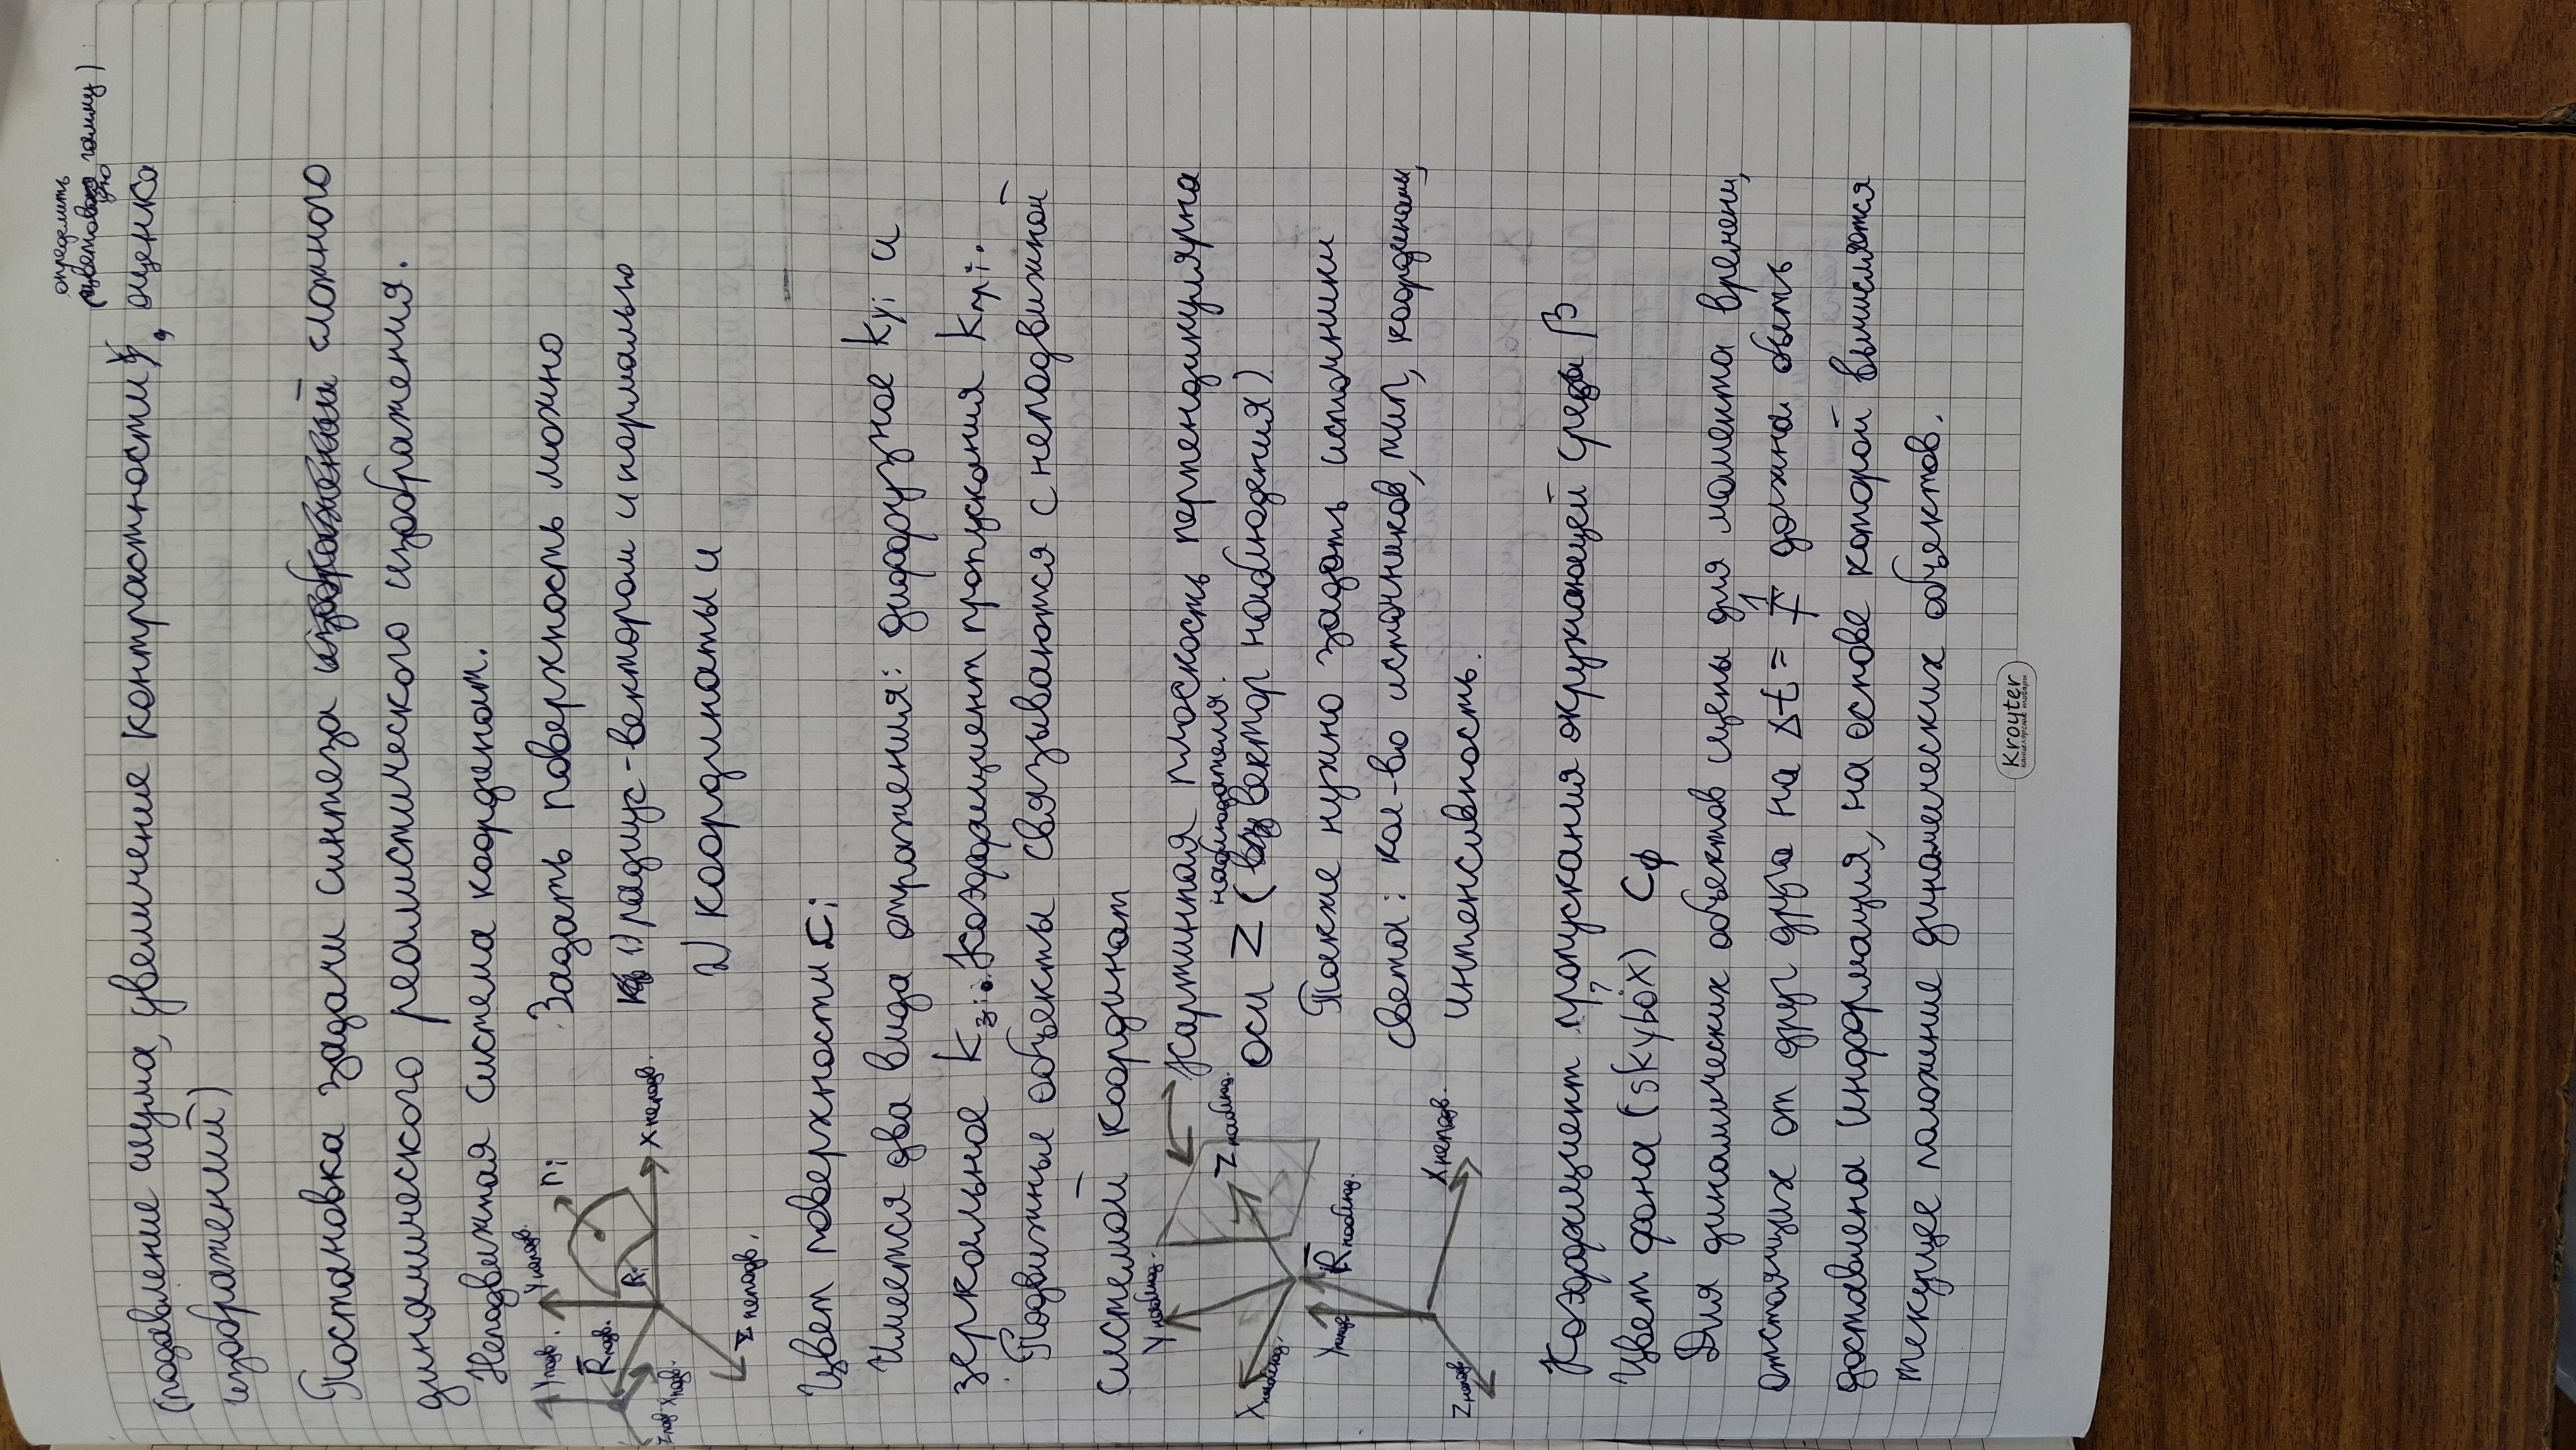 определить
(цветовую гамму)
(подавление шума, увеличение контрастности, оценка
изображений)
Постановка задачи синтеза сложного
динамического реалистического изображения.
Неподвижная система координат.
Yподв.
Yнеподв.
ni
R̄подв.
Ri
Xнеподв.
Zподв.
Xподв.
Zнеподв.
Задать поверхность можно
1) радиус-вектором и нормалью
2) координаты и
Цвет поверхности Ci
Имеется два вида отражения: диффузное kуi и
зеркальное kзi. Коэффициент пропускания kпрi.
Подвижные объекты связываются с неподвижной
системой координат
Yнаблюд.
Zнаблюд.
Xнаблюд.
R̄наблюд.
Xнеподв.
Zнеподв
Картинная плоскость перпендикулярна
наблюдателя.
оси Z (вектор наблюдения)
Также нужно задать источники
света: кол-во источников, тип, координаты,
интенсивность.
Коэффициент пропускания окружающей среды β
?
Цвет фона (skybox) Cф
Для динамических объектов сцены для момента времени,
отстоящих от друг друга на Δt = 1/f должна быть
доставлена информация, на основе которой вычисляются
текущее положение динамических объектов.
Kroyter
канцелярские товары